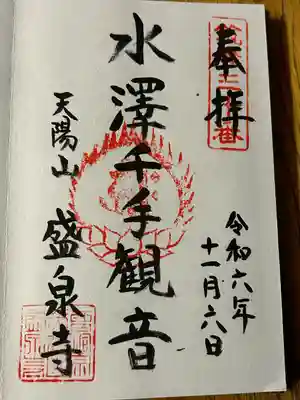 奉拝
令和六年
十一月六日
水澤千手観音
天陽山
盛泉寺